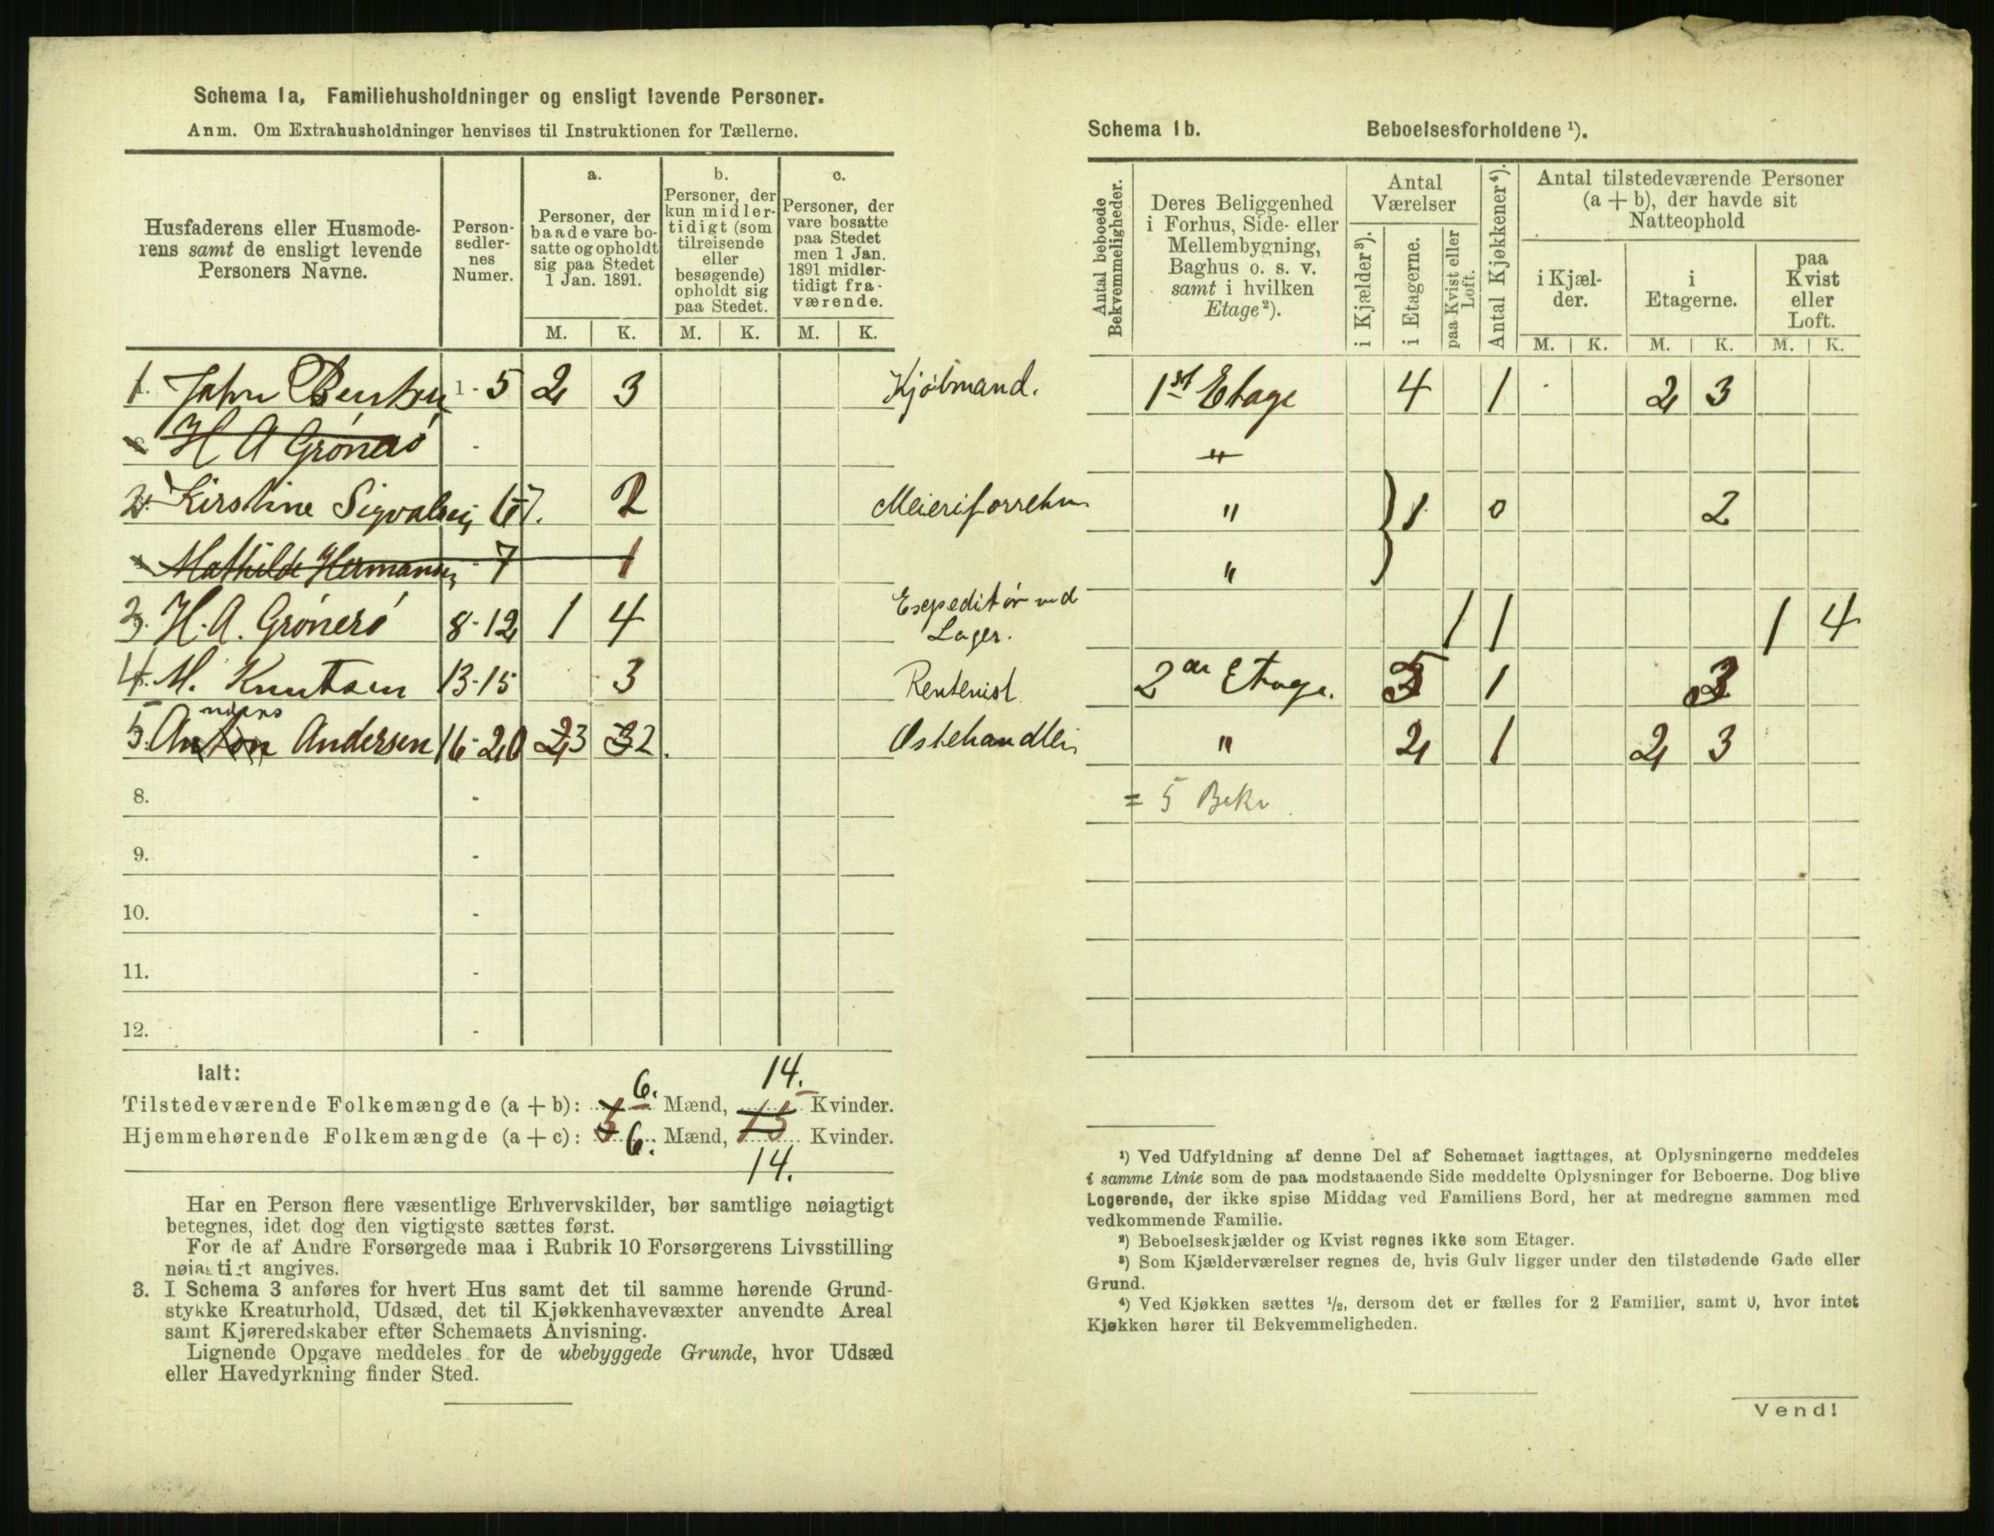 Schema 1a, Familiehusholdninger og ensligt levende Personer.
Anm. Om Extrahusholdninger henvises til Instruktionen for Tællerne.
Husfaderens eller Husmode-
rens samt de ensligt levende
Personers Navne.
Person-
sedler-
nes
Numer.
a.
Personer, der
baade vare bo-
satte og opholdt
sig paa Stedet
1 Jan. 1891.
b.
Personer, der
kun midler-
tidigt (som
tilreisende
eller
besøgende)
opholdt sig
paa Stedet.
c.
Personer, der
vare bosatte
paa Stedet
men 1 Jan.
1891 midler-
tidigt fra-
værende.
M. K. M. K. M. K.
1. John 1-5 2 3 Kjøbmand.
H A Grønerø -
2. Kirstine 6-7. 2
Mathilde Hermansen 7 1
3. H. A. Grønerø 8-12 1 4 Expeditør ved
Lager.
4. M. Knutsen 13-15 3 Rentenist
nders
5. Anton Andersen 16-20 2 3 3 2. Ostehandler
8. -
9. -
10. -
11. -
12. -
Ialt:
6. 14.
Tilstedeværende Folkemængde (a + b): Mænd, 15 Kvinder.
Hjemmehørende Folkemængde (a + c): 5 6. Mænd, Kvinder.
14.
Har en Person flere væsentlige Erhvervskilder, bør samtlige nøiagtigt
betegnes, idet dog den vigtigste sættes først.
For de af Andre Forsørgede maa i Rubrik 10 Forsørgerens Livsstilling
nøiagtigt angives.
3. I Schema 3 anføres for hvert Hus samt det til samme hørende Grund-
stykke Kreaturhold, Udsæd, det til Kjøkkenhavevæxter anvendte Areal
samt Kjøreredskaber efter Schemaets Anvisning.
Lignende Opgave meddeles for de ubebyggede Grunde, hvor Udsæd
eller Havedyrkning finder Sted.
Schema 1b. Beboelsesforholdene ¹).
Antal beboede
Bekvemmeligheder.
Deres Beliggenhed
i Forhus, Side- eller
Mellembygning,
Baghus o. s. v.
samt i hvilken
Etage ²).
Antal
Værelser
i Kjælder ³).
i Etagerne.
paa Kvist eller
Loft.
Antal Kjøkkener ⁴).
Antal tilstedeværende Personer
(a + b), der havde sit
Natteophold
i Kjæl-
der.
i
Etagerne.
paa
Kvist
eller
Loft.
M. K. M. K. M. K.
1st Etage 4 1 2 3
"
" } 1 0 2
"
1 1 1 4
2den Etage. 1 3
" 2 1 2 3
= 5 Bekv.
¹) Ved Udfyldning af denne Del af Schemaet iagttages, at Oplysningerne meddeles
i samme Linie som de paa modstaaende Side meddelte Oplysninger for Beboerne. Dog blive
Logerende, der ikke spise Middag ved Familiens Bord, her at medregne sammen med
vedkommende Familie.
²) Beboelseskjælder og Kvist regnes ikke som Etager.
³) Som Kjælderværelser regnes de, hvis Gulv ligger under den tilstødende Gade eller
Grund.
⁴) Ved Kjøkken sættes ½, dersom det er fælles for 2 Familier, samt 0, hvor intet
Kjøkken hører til Bekvemmeligheden.
Vend!